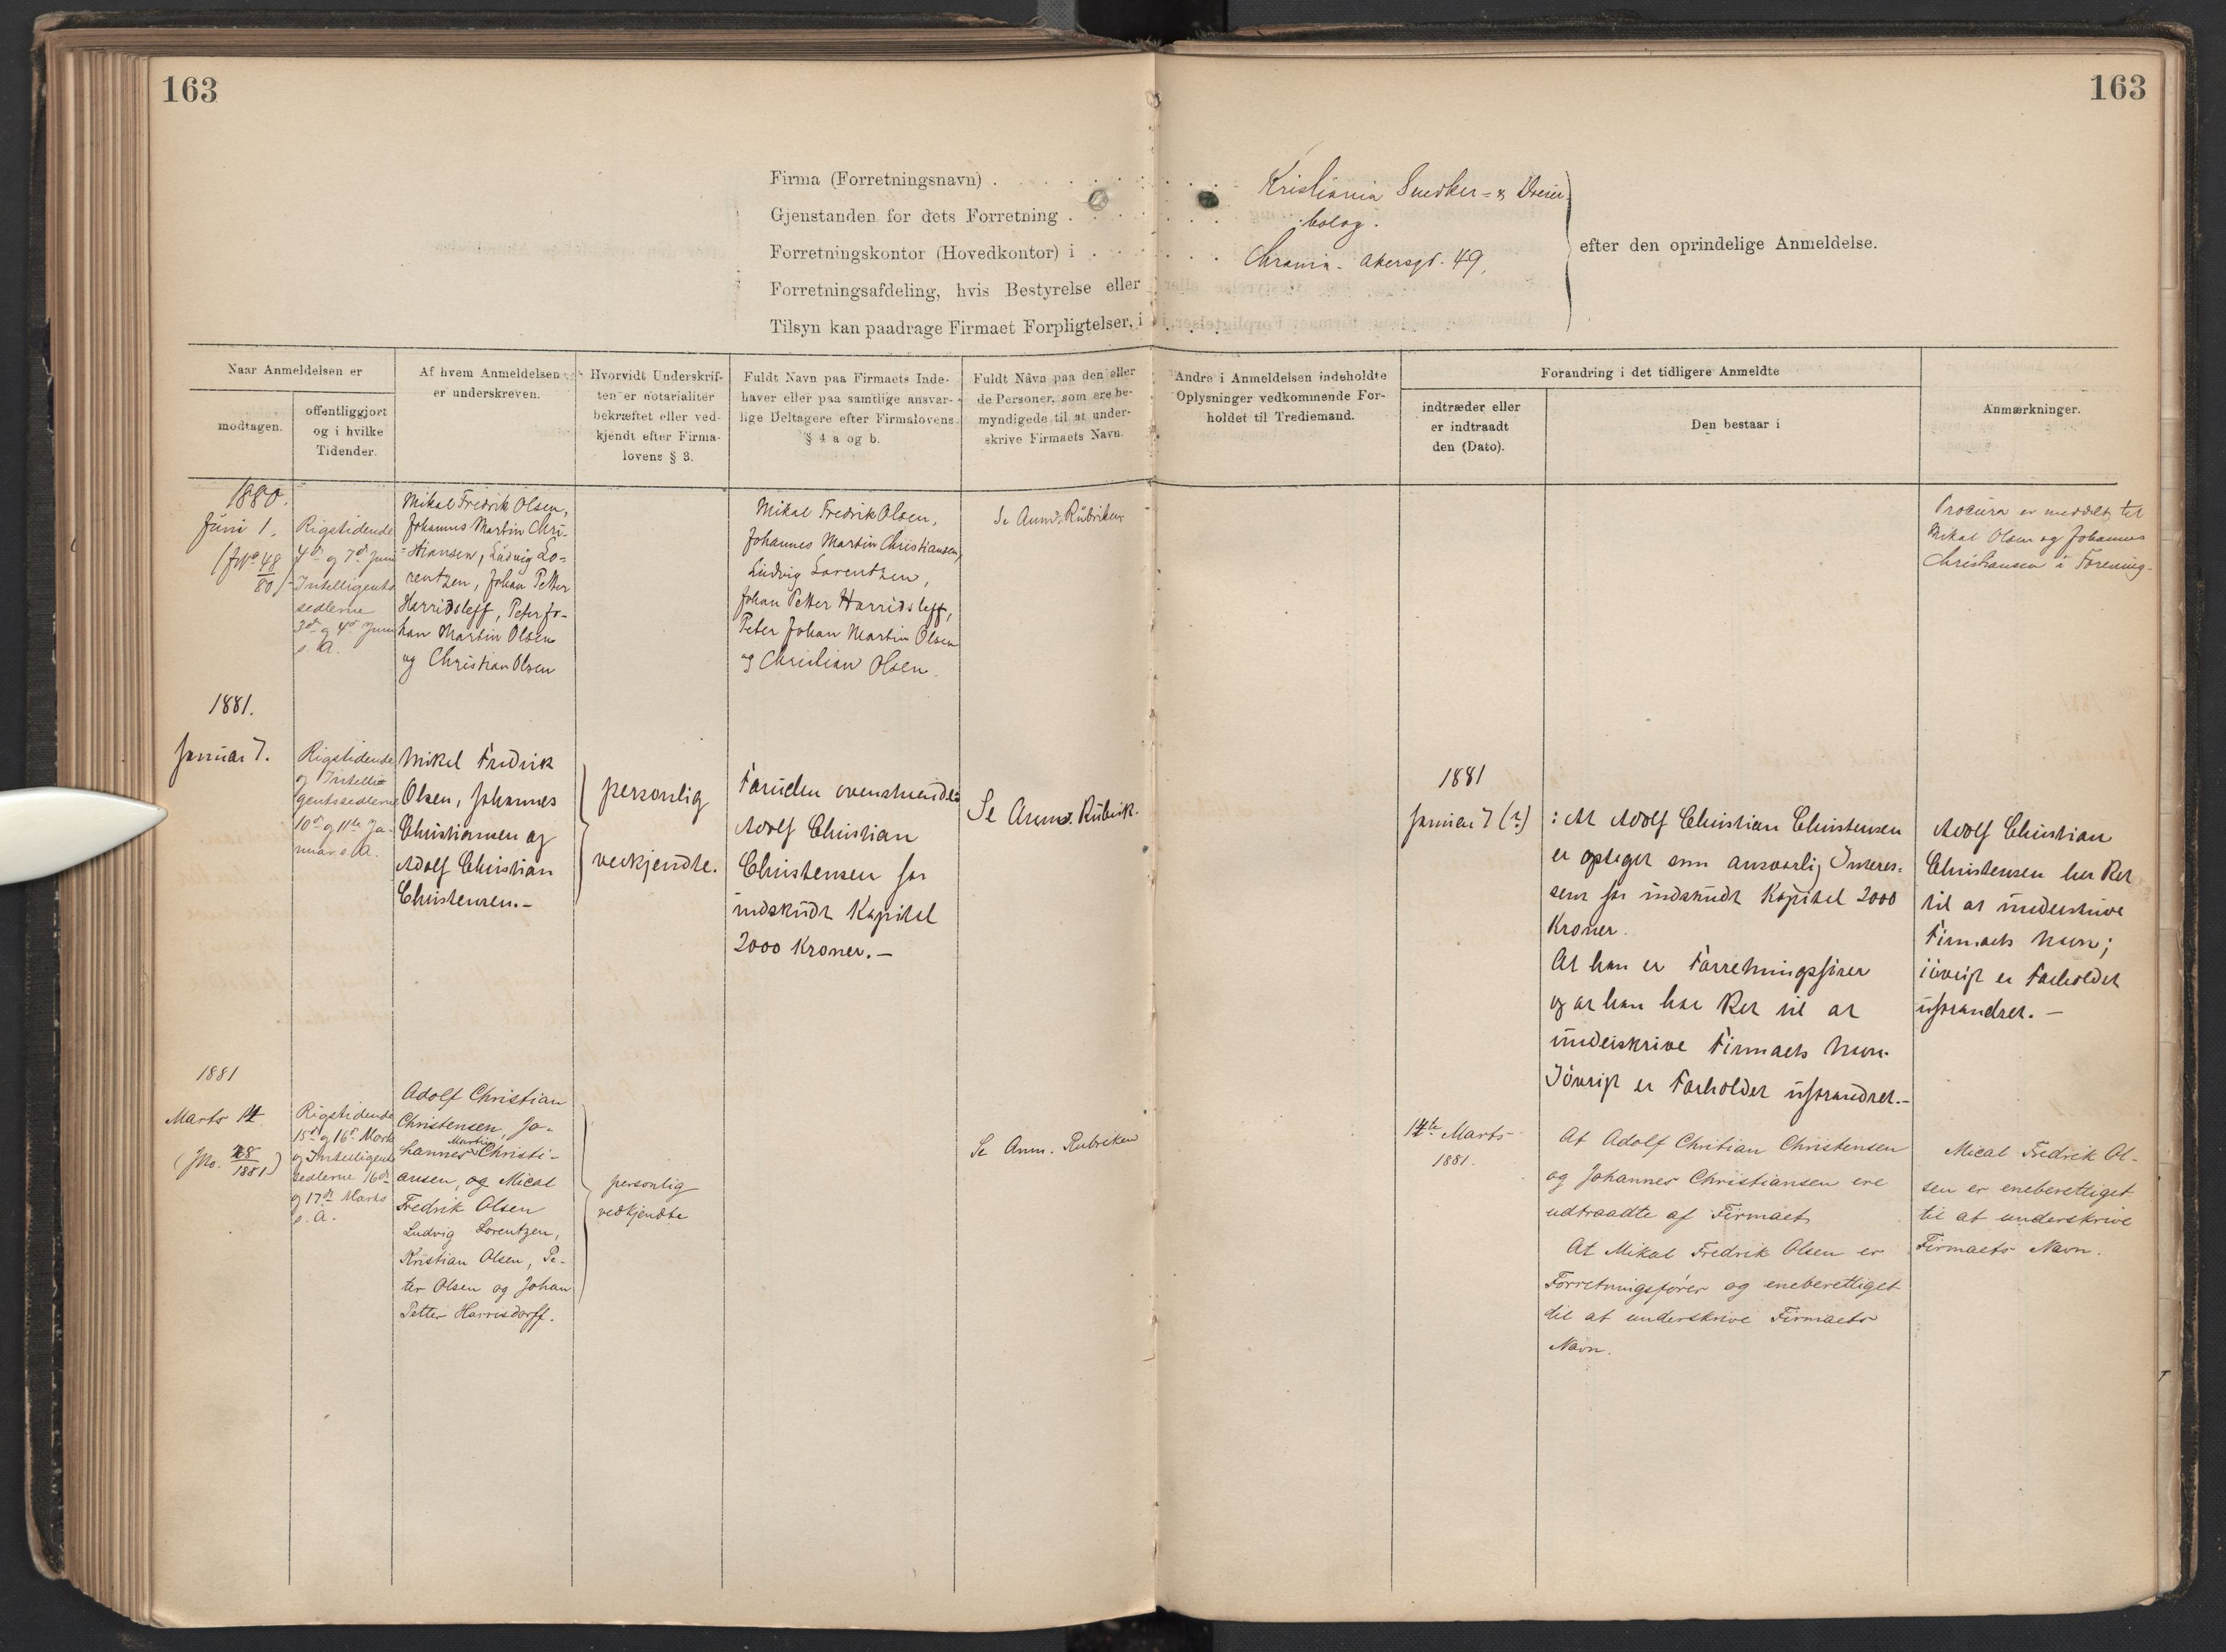 163
163
Firma (Forretningsnavn)
Gjenstanden for dets Forretning
Forretningskontor (Hovedkontor) i
Forretningsafdeling, hvis Bestyrelse eller
Tilsyn kan paadrage Firmaet Forpligtelser, i
Kristiania Snedker- &
bolag.
Chrania. Akersgd. 49.
efter den oprindelige Anmeldelse.
Naar Anmeldelsen er
modtagen.
offentliggjort
og i hvilke
Tidender.
Af hvem Anmeldelsen
er underskreven.
Hvorvidt Underskrif-
ten er notarialiter
bekræftet eller ved-
kjendt efter Firma-
lovens § 3.
Fuldt Navn paa Firmaets Inde-
haver eller paa samtlige ansvar-
lige Deltagere efter Firmalovens
§ 4 a og b.
Fuldt Navn paa den eller
de Personer, som ere be-
myndigede til at under-
skrive Firmaets Navn.
Andre i Anmeldelsen indeholdte
Oplysninger vedkommende For-
holdet til Trediemand.
Forandring i det tidligere Anmeldte
indtræder eller
er indtraadt
den (Dato).
Den bestaar i
Anmærkninger.
1880.
Juni 1.
(JNo 48
80)
Rigstidende
4de og 7de Juni
Intelligents
sedlerne
3de og 4de Juni
s. A.
Mikal Fredrik Olsen,
Johannes Martin Chri-
=stiansen, Ludvig Lo-
rentzen, Johan Petter
Harridsleff, Peter Jo-
han Martin Olsen
og Christian Olsen
Mikal Fredrik Olsen,
Johannes Martin Christiansen,
Ludvig Lorentzen,
Johan Petter Harridsleff,
Peter Johan Martin Olsen
og Christian Olsen.
Se Anm. Rubriken
Procura er meddelt til
Mikal Olsen og Johannes
Christiansen i Forening.
1881.
Januar 7.
Rigstidende
og Intelli=
gentssedlerne
10de og 11te Ja-
nuar s. A.
Mikal Fredrik
Olsen, Johannes
Christiansen og
Adolf Christian
Christensen.-
personlig
vedkjendte.
Foruden ovenstaaende:
Adolf Christian
Christensen for
indskudt Kapital
2000 Kroner.-
Se Anm. Rubrik.
1881
Januar 7 (?)
: At Adolf Christian Christensen
er optaget som ansvarlig Interes=
sent for indskudt Kapital 2000
Kroner.
At han er Forretningsfører
og at han har Ret til at
underskrive Firmaets Navn.
Iøvrigt er Forholdet uforandret.-
Adolf Christian
Christensen har Ret
til at underskrive
Firmaets Navn;
iøvrigt er Forholdet
uforandret.-
1881
Marts 14.
(JNo. 28
1881)
Rigstidende
15de og 16de Marts
og Intelligents
sedlerne 16de
og 17de Marts
s. A.
Adolf Christian
Christensen, Jo-
hannes Martin Christi-
ansen, og Mical
Fredrik Olsen
Ludvig Lorentzen,
Kristian Olsen, Pe-
ter Olsen og Johan
Petter Harrisdorff.
personlig
vedkjendte
Se Anm. Rubriken
14de Marts
1881.
At Adolf Chritian Christensen
og Johannes Christiansen ere
udtraadte af Firmaet,
At Mikal Fredrik Olsen er
Forretningsfører og eneberettiget
til at underskrive Firmaets
Navn.
Mical Fredrik Ol-
sen er eneberettiget
til at underskrive
Firmaets Navn.